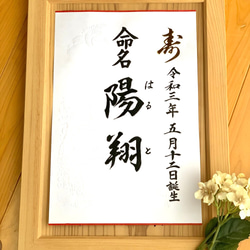 寿
令和三年 五月十二日誕生
命名 陽翔
はると